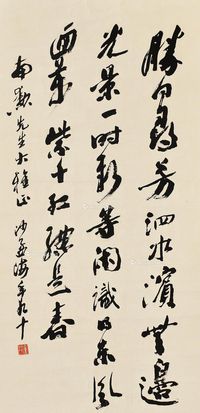 勝日尋芳泗水濱無邊
光景一時新等閑識得東風
面萬紫千紅總是春
南歌先生大雅正 沙孟海年九十